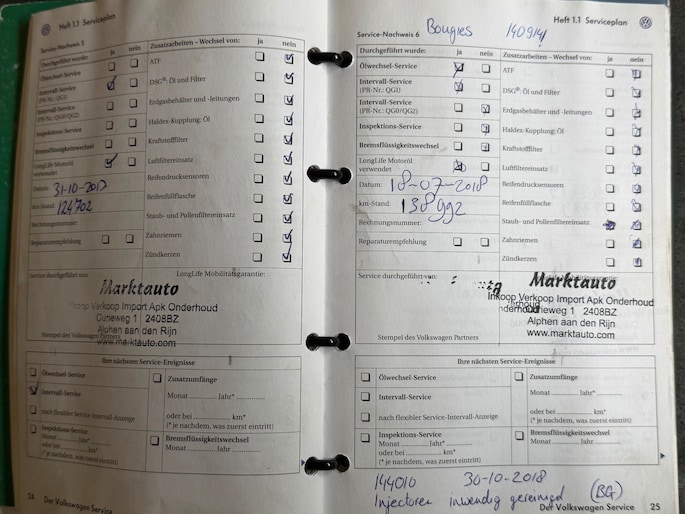 Heft 1.1 Serviceplan
Service-Nachweis 5
Durchgeführt wurde: ja nein
Ölwechsel-Service
Intervall-Service
(PR-Nr.: QG1)
Intervall-Service
(PR-Nr.: QG0/QG2)
Inspektions-Service
Bremsflüssigkeitswechsel
LongLife Motoröl
verwendet
Datum: 31-10-2017
km-Stand: 124702
Rechnungsnummer:
Reparaturempfehlung
Zusatzarbeiten – Wechsel von: ja nein
ATF
DSG®: Öl und Filter
Erdgasbehälter und -leitungen
Haldex-Kupplung: Öl
Kraftstofffilter
Luftfiltereinsatz
Reifendrucksensoren
Reifenfüllflasche
Staub- und Pollenfiltereinsatz
Zahnriemen
Zündkerzen
Service durchgeführt von:
LongLife Mobilitätsgarantie:
Marktauto
Inkoop Verkoop Import Apk Onderhoud
Curieweg 1 2408BZ
Alphen aan den Rijn
www.marktauto.com
Stempel des Volkswagen Partners
Ihre nächsten Service-Ereignisse
Ölwechsel-Service
Intervall-Service
nach flexibler Service-Intervall-Anzeige
Inspektions-Service
Monat Jahr*
oder bei km*
(* je nachdem, was zuerst eintritt)
Zusatzumfänge
Monat Jahr*
oder bei km*
(* je nachdem, was zuerst eintritt)
Bremsflüssigkeitswechsel
Monat Jahr*
24 Der Volkswagen Service
Heft 1.1 Serviceplan
Service-Nachweis 6 Bougies
Durchgeführt wurde: ja nein
Ölwechsel-Service
Intervall-Service
(PR-Nr.: QG1)
Intervall-Service
(PR-Nr.: QG0/QG2)
Inspektions-Service
Bremsflüssigkeitswechsel
LongLife Motoröl
verwendet
Datum: 18-07-2018
km-Stand: 138992
Rechnungsnummer:
Reparaturempfehlung
Zusatzarbeiten – Wechsel von: ja nein
ATF
DSG®: Öl und Filter
Erdgasbehälter und -leitungen
Haldex-Kupplung: Öl
Kraftstofffilter
Luftfiltereinsatz
Reifendrucksensoren
Reifenfüllflasche
Staub- und Pollenfiltereinsatz
Zahnriemen
Zündkerzen
Service durchgeführt von:
Marktauto
Inkoop Verkoop Import Apk Onderhoud
Curieweg 1 2408BZ
Alphen aan den Rijn
www.marktauto.com
Stempel des Volkswagen Partners
Ihre nächsten Service-Ereignisse
Ölwechsel-Service
Intervall-Service
nach flexibler Service-Intervall-Anzeige
Inspektions-Service
Monat Jahr*
oder bei km*
(* je nachdem, was zuerst eintritt)
Zusatzumfänge
Monat Jahr*
oder bei km*
(* je nachdem, was zuerst eintritt)
Bremsflüssigkeitswechsel
Monat Jahr*
144010 30-10-2018
Injectoren inwendig gereinigd (BG)
Der Volkswagen Service 25